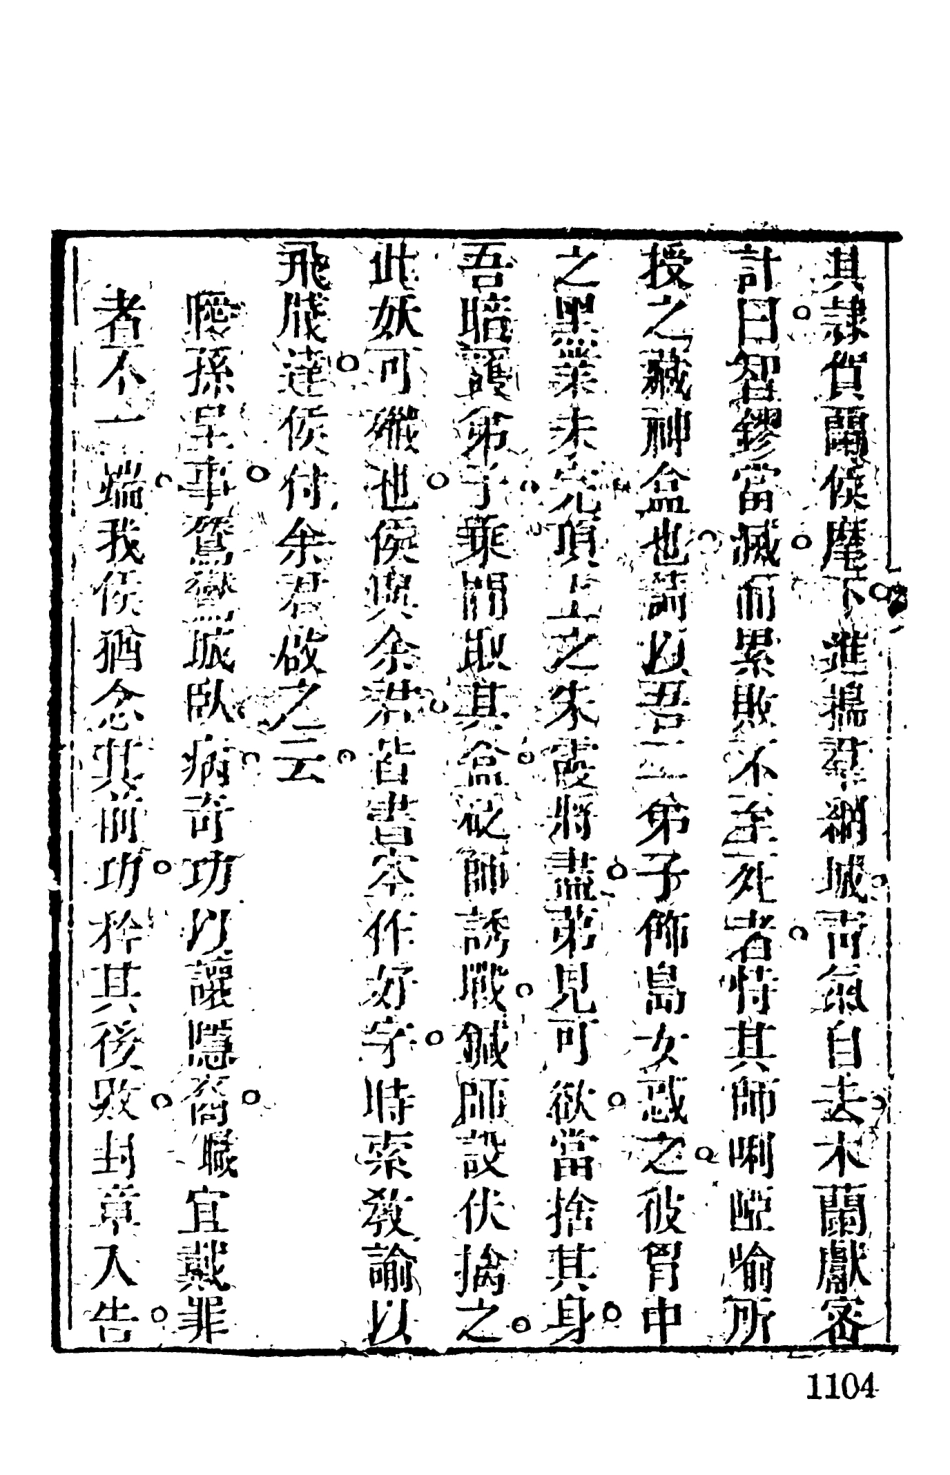 其隷賀蘭侯麾下進搗羣網城青氣自去木蘭獻密
計曰智鏐當滅而累敗不至死者恃其師唎啞喻所
授之藏神盒也請以吾二弟子飾島女惑之彼胷中
之黑業未完頂上之朱霞將盡苐見可欲當捨其身
吾暗護弟子乘間取其盒祝師誘戰鍼師設伏擒之
此妖可殲也侯與余君皆書空作好字時索敎諭以
飛牋達侯付余君啟之云
孫呈事鴛鴦城臥病奇功以讓隱裔職宜戴罪
者不一端我侯猶念其前功矜其後敗封章入告
1104